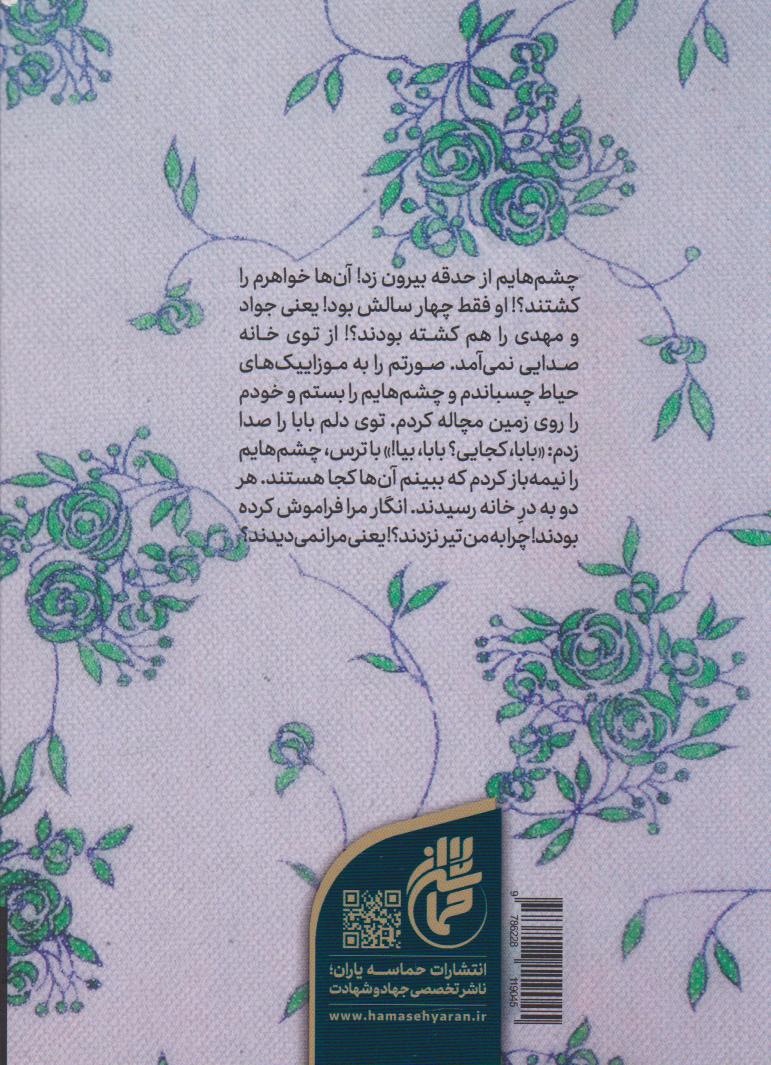 چشم‌هایم از حدقه بیرون زد! آن‌ها خواهرم را
کشتند؟! او فقط چهار سالش بود! یعنی جواد
و مهدی را هم کشته بودند؟! از توی خانه
صدایی نمی‌آمد. صورتم را به موزاییک‌های
حیاط چسباندم و چشم‌هایم را بستم و خودم
را روی زمین مچاله کردم. توی دلم بابا را صدا
زدم: «بابا، کجایی؟ بابا، بیا!» با ترس، چشم‌هایم
را نیمه‌باز کردم که ببینم آن‌ها کجا هستند. هر
دو به درِ خانه رسیدند. انگار مرا فراموش کرده
بودند! چرا به من تیر نزدند؟! یعنی مرا نمی‌دیدند؟
حماسه یاران
انتشارات حماسه یاران؛
ناشر تخصصی جهاد و شهادت
www.hamasehyaran.ir
9 786228 119045